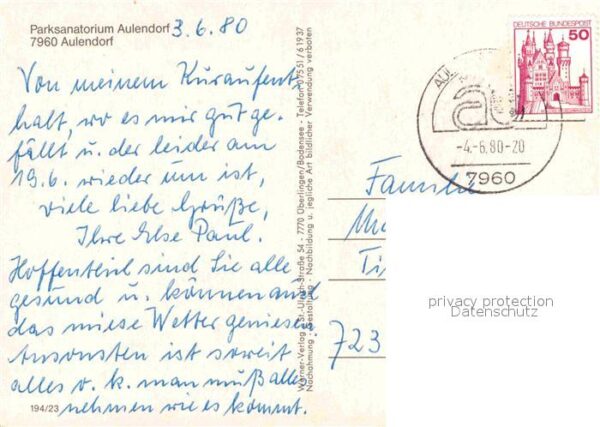 Parksanatorium Aulendorf
7960 Aulendorf
3.6.80
Von meinem Kuraufent-
halt, wo es mir gut ge-
fällt u. der leider am
19.6. wieder um ist,
viele liebe Grüße,
Ihre Else Paul.
Hoffentlich sind Sie alle
gesund u. können auch
das miese Wetter geniesen.
Ansonsten ist soweit
alles o.k. man muß alles
nehmen wie es kommt.
194/23
Werner-Verlag · St.-Ulrich-Straße 54 - 7770 Überlingen/Bodensee - Telefon 07551/61937
Nachahmung - Gestaltung - Nachbildung u. jegliche Art bildlicher Verwendung verboten
DEUTSCHE BUNDESPOST
50
AUL
-4.-6.80-20
7960
Familie
723
privacy protection
Datenschutz